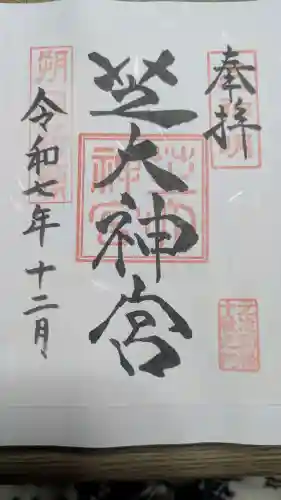 奉拝
芝大神宮
令和七年十二月